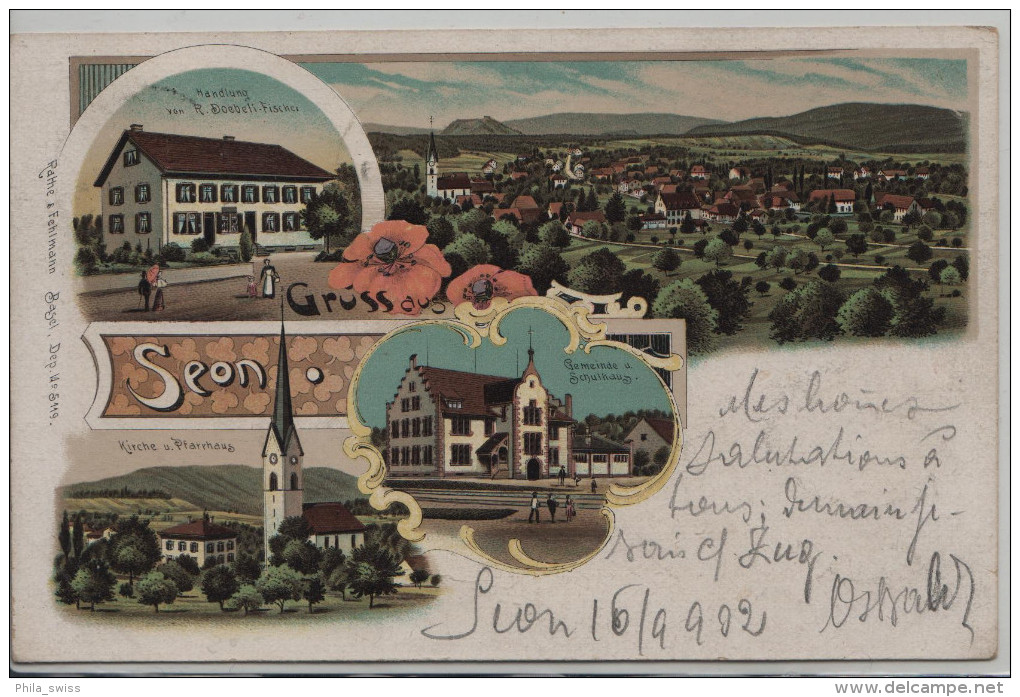 Handlung
von R. Doebeli-Fischer
Gruss aus
Seon.
Gemeinde u.
Schulhaus.
Kirche u. Pfarrhaus
Rathe & Fehlmann Basel. Dep. No 5119.
Mes bonnes
salutations à
tous; demain je
serai
Zug.
Seon 16/9 902
Phila_swiss
www.delcampe.net